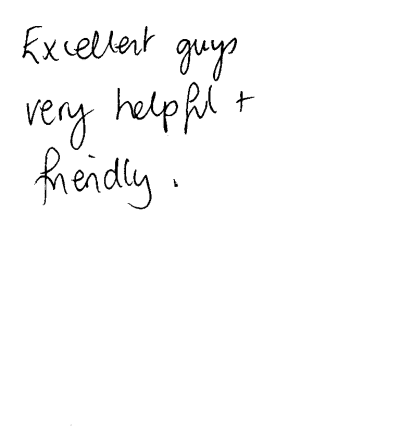 Excellent guys
very helpful +
friendly.